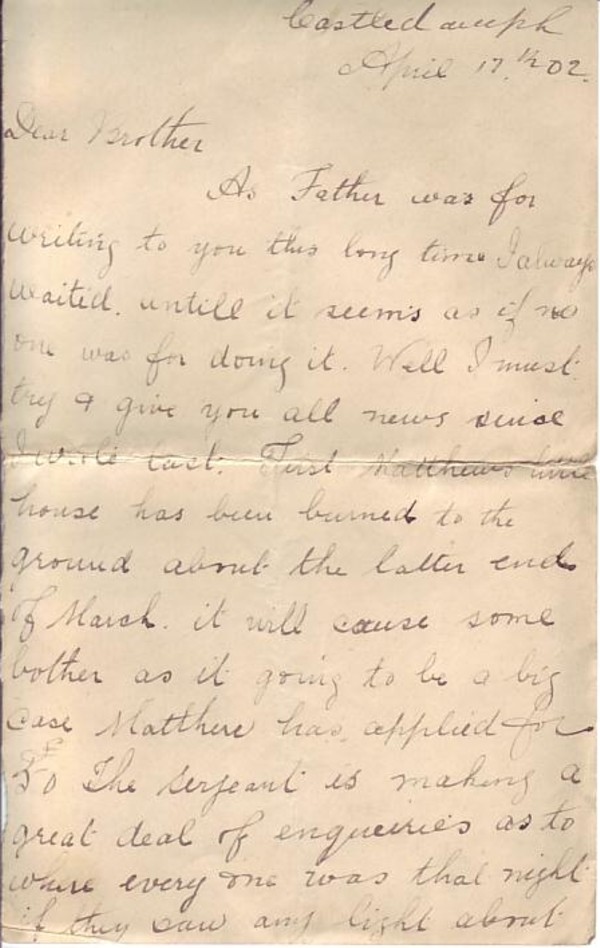 Castledamph
April 17th 02.
Dear Brother
As Father was for
writing to you this long time I always
waited. untill it seems as if no
one was for doing it. Well I must
try & give you all news since
I wrote last. First Matthews little
house has been burned to the
ground about the latter end
of March. it will cause some
bother as it going to be a big
case Matthew has applied for
£50 The serjeant is making a
great deal of enqueiries as to
where every one was that night
if they saw any light about